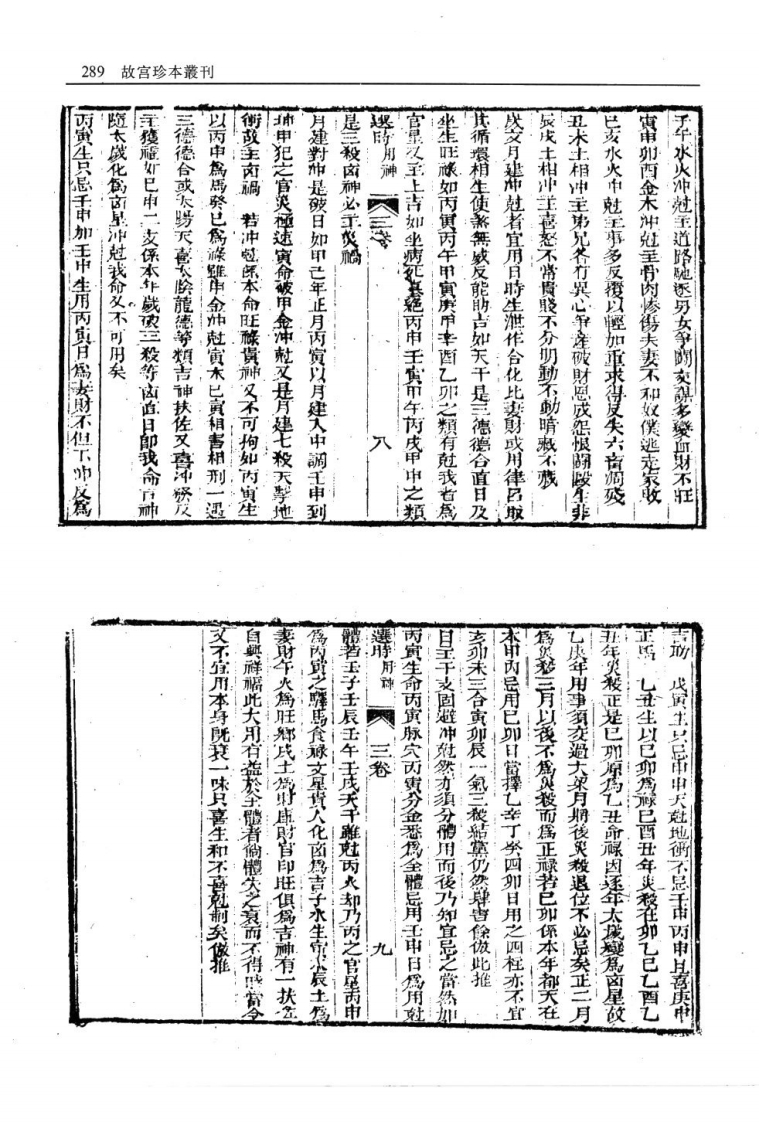 289 故宫珍本叢刊
子午水火沖尅主道路馳逐男女爭鬪交謀多變血財不旺
寅申卯酉金木沖尅主骨肉慘傷夫妻不和奴僕逃走家敗
巳亥水火沖尅主事多反覆以輕加重求得反失六畜凋殘
丑未土相沖主弟兄各有異心爭產破財恩成怨恨鬪毆生非
辰戌土相沖主喜怒不常貴賤不分明動不動暗戲不戲
歲交月建沖尅者宜用日時生泄作合化比妻財或用律呂取
其循環相生使煞無威反能助吉如天干是三德德合直日及
坐生旺祿如丙寅丙午甲寅庚申辛酉乙卯之類有尅我者爲
官星又主上吉如坐病死墓絶丙申壬寅甲午丙戌甲申之類
選時用神 三卷 八
是三殺凶神必主災禍
月建對沖是破日如甲己年正月丙寅以月建入中調壬申到
坤申犯之官災極速寅命破甲金沖尅又是月建七殺天擊地
衝故主凶禍 若沖尅係本命旺祿貴神又不可拘如丙寅生
以丙申爲馬癸巳爲祿雖申金沖尅寅木巳寅相害相刑一遇
三德德合或太陽天喜太陰龍德等類吉神扶佐又喜沖祿反
主獲福如巳申二支係本年歲破三殺等凶直日卽我命吉神
隨太歲化爲凶星沖尅我命又不可用矣
丙寅生只忌壬申加壬申生用丙寅日爲妻財不但不沖反爲
吉助 戊寅生只忌甲申天尅地衝不忌壬申丙申且喜庚申
正馬 乙丑生以巳卯爲祿巳酉丑年災殺在卯乙巳乙酉乙
丑年災殺正是巳卯原爲乙丑命祿因逐年太歲變爲凶星故
乙庚年用事須交過大梁月將後災殺退位不必忌矣正二月
爲災殺三月以後不爲災殺而爲正祿若巳卯係本年都天在
本甲內忌用巳卯日當擇乙辛丁癸四卯日用之四柱亦不宜
亥卯未三合寅卯辰一氣三殺結黨仍然肆害餘倣此推
日主干支固避沖尅然亦須分體用而後乃知宜忌之當然如
丙寅生命丙寅脉穴丙寅分金悉爲全體忌用壬申日爲用尅
選時用神 三卷 九
體若壬子壬辰壬午壬戌天干雖尅丙火却乃丙之官星丙申
爲丙寅之驛馬食祿文星貴人化凶爲吉子水生寅木辰土爲
妻財午火爲旺鄉戌土爲財庫財官印旺俱爲吉神有一扶合
自興祥福此大用有益於全體者倘體失之衰而不得時當令
又不宜用本身旣衰一味只喜生和不喜尅制矣倣推